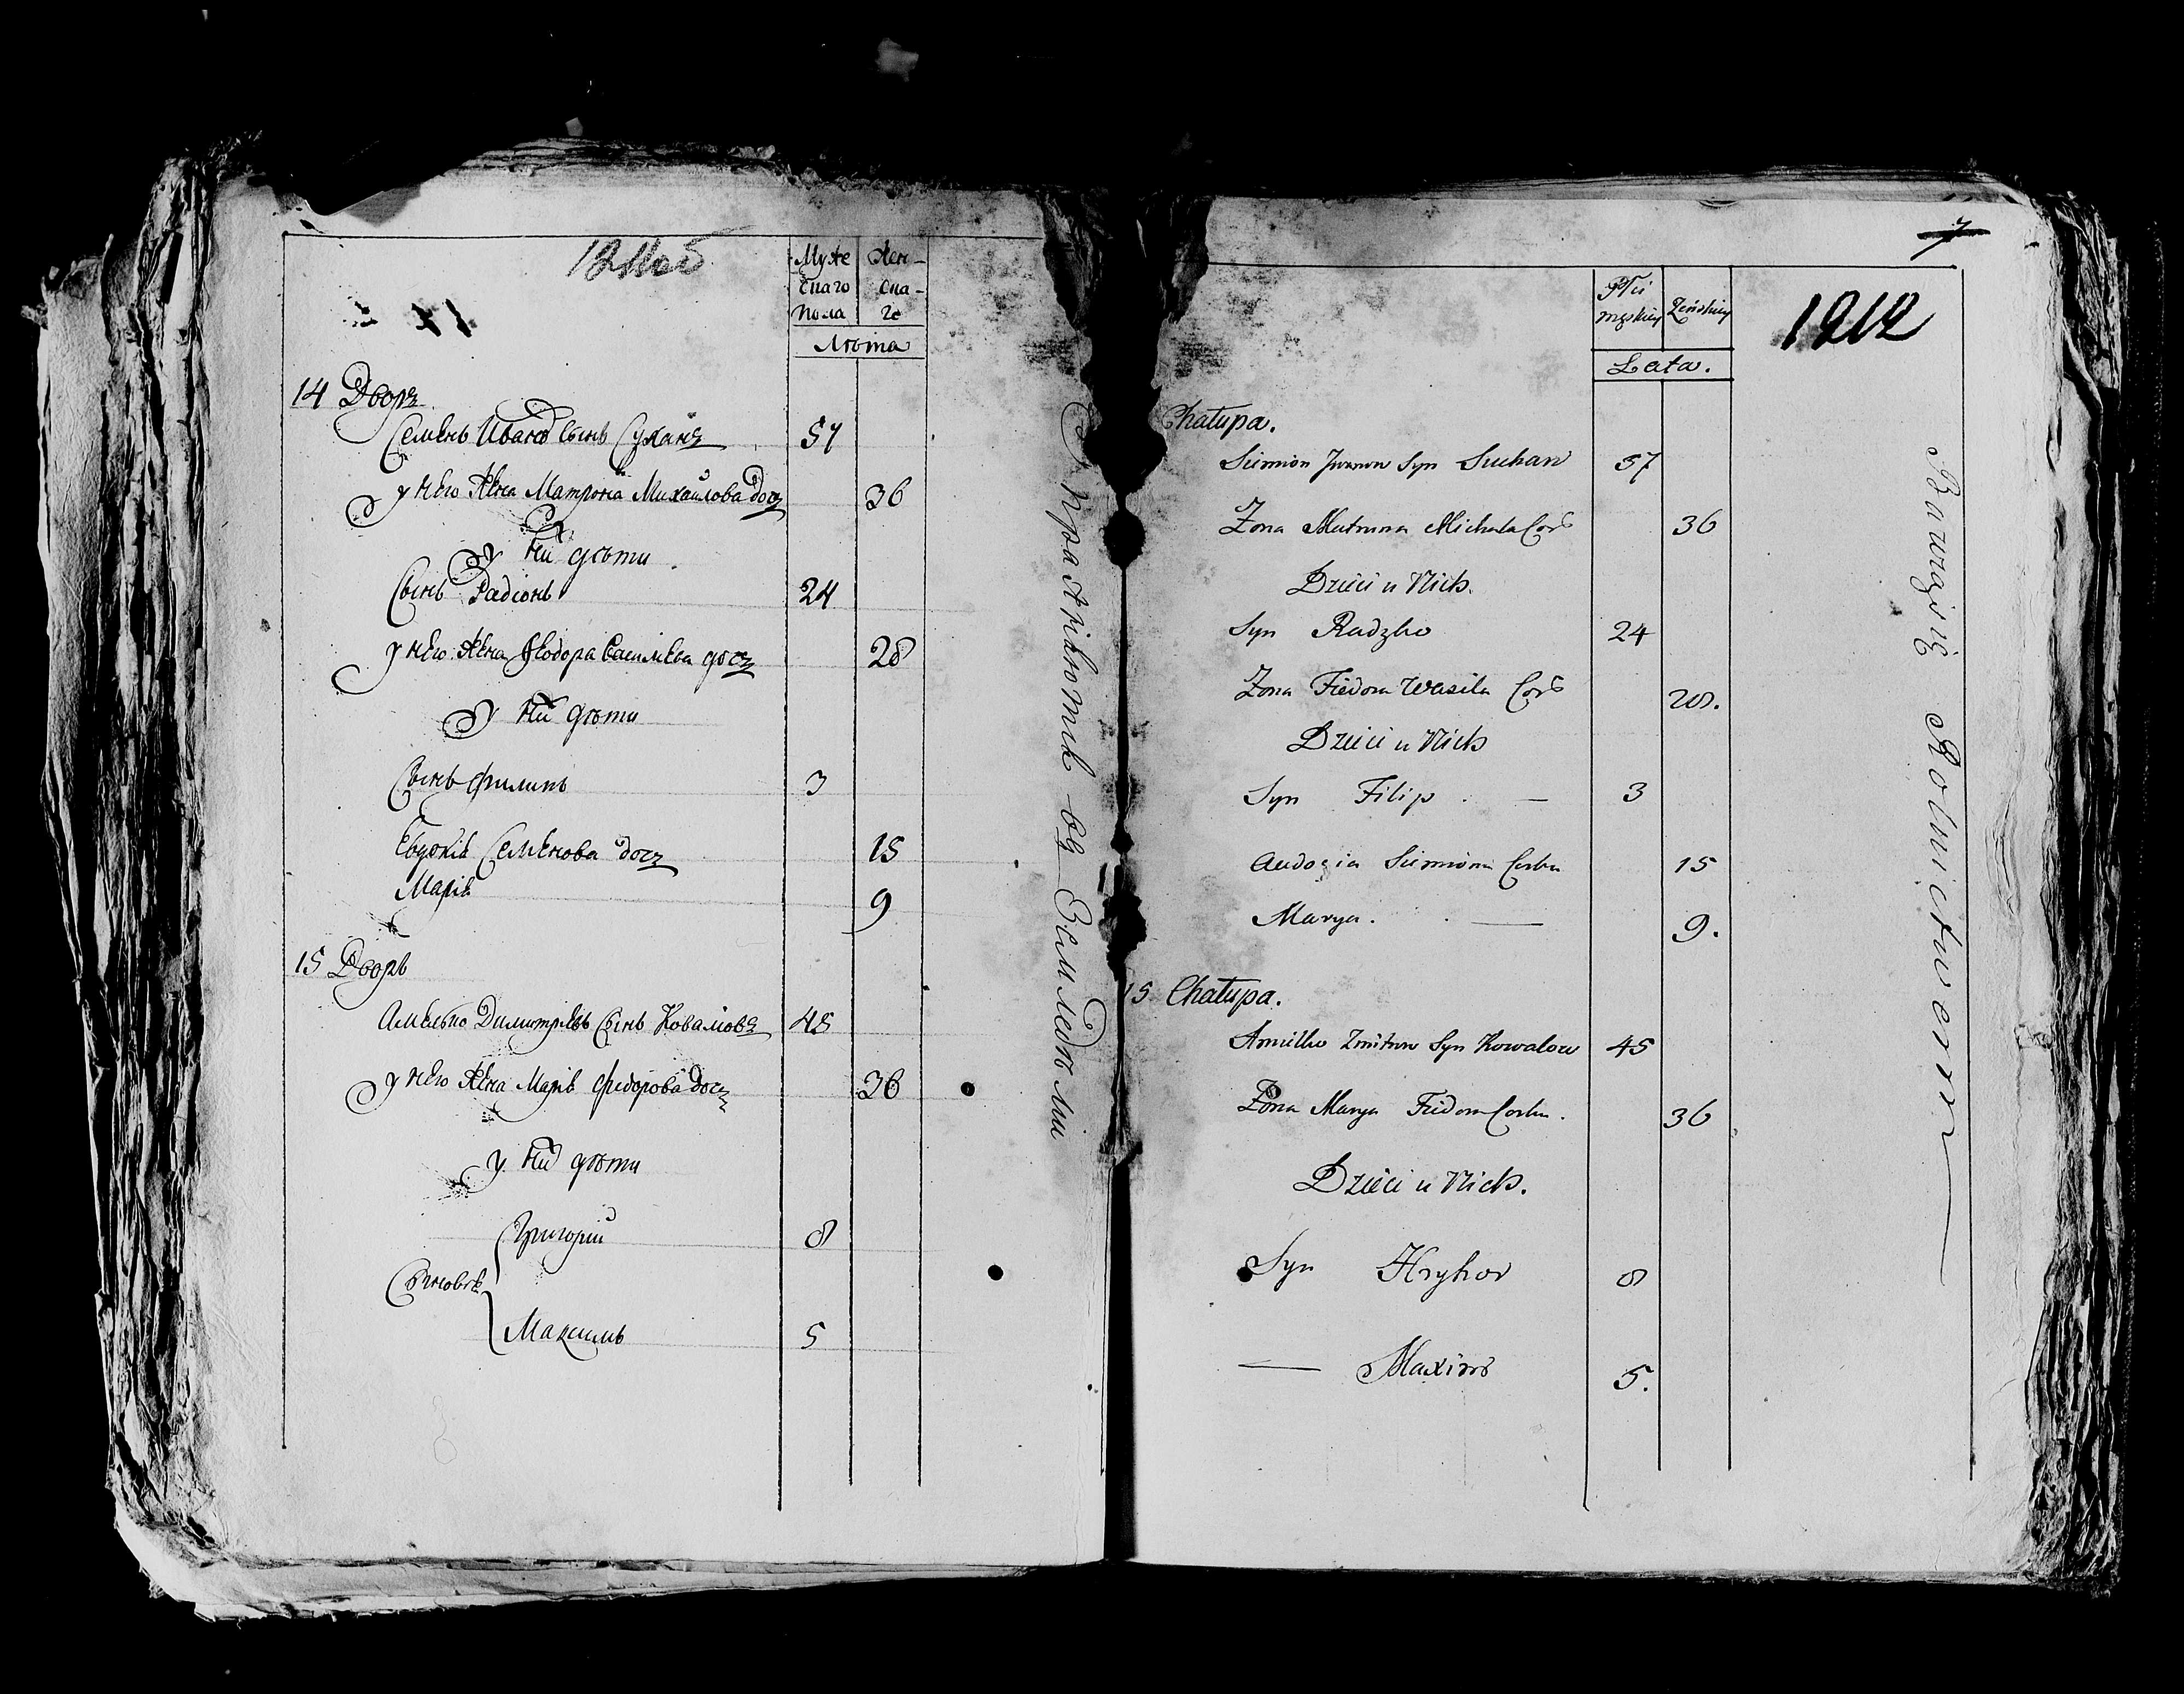 Муже
Жен-
скаго
ска-
пола
го
Лѣта
14 Дворъ
Семенъ Ивановъ сынъ Суханъ 57
у него жена Матрона Михайлова дочъ 36
У ни дѣти
Сынъ Радіонъ 24
у него жена Ѳеодора Василева дочъ 28
У ни дѣти
Сынъ Филипъ 3
Евдокія Семенова дочъ 15
Марія 9
15 Дворъ
Амелько Димитріевъ сынъ Коваловъ 45
у него жена Марія Федорова дочъ 36
у ни дѣти
Григорій 8
Сыновья
Максимъ 5
Упражнютъ въ Земледѣліи
7
Płci
męskiey Żeńskiey
1212
Lata.
Chałupa.
Siemion Iwanow Syn Suchan 57
Żona Matruna Michała Cor 36
Dzieci u Nich.
Syn Radzko 24
Żona Fiedora Wasila Cor 28.
Dzieci u Nich
Syn Filip. — 3
Audozia Siemiona Corka 15
Marya. — 9.
15 Chałupa.
Amiłko Zmitrow Syn Kowalow 45
Żona Marya Fiedora Corka. 36
Dzieci u Nich.
Syn Hryhor 8
— Maxim 5.
Bawią się Rolnictwem —